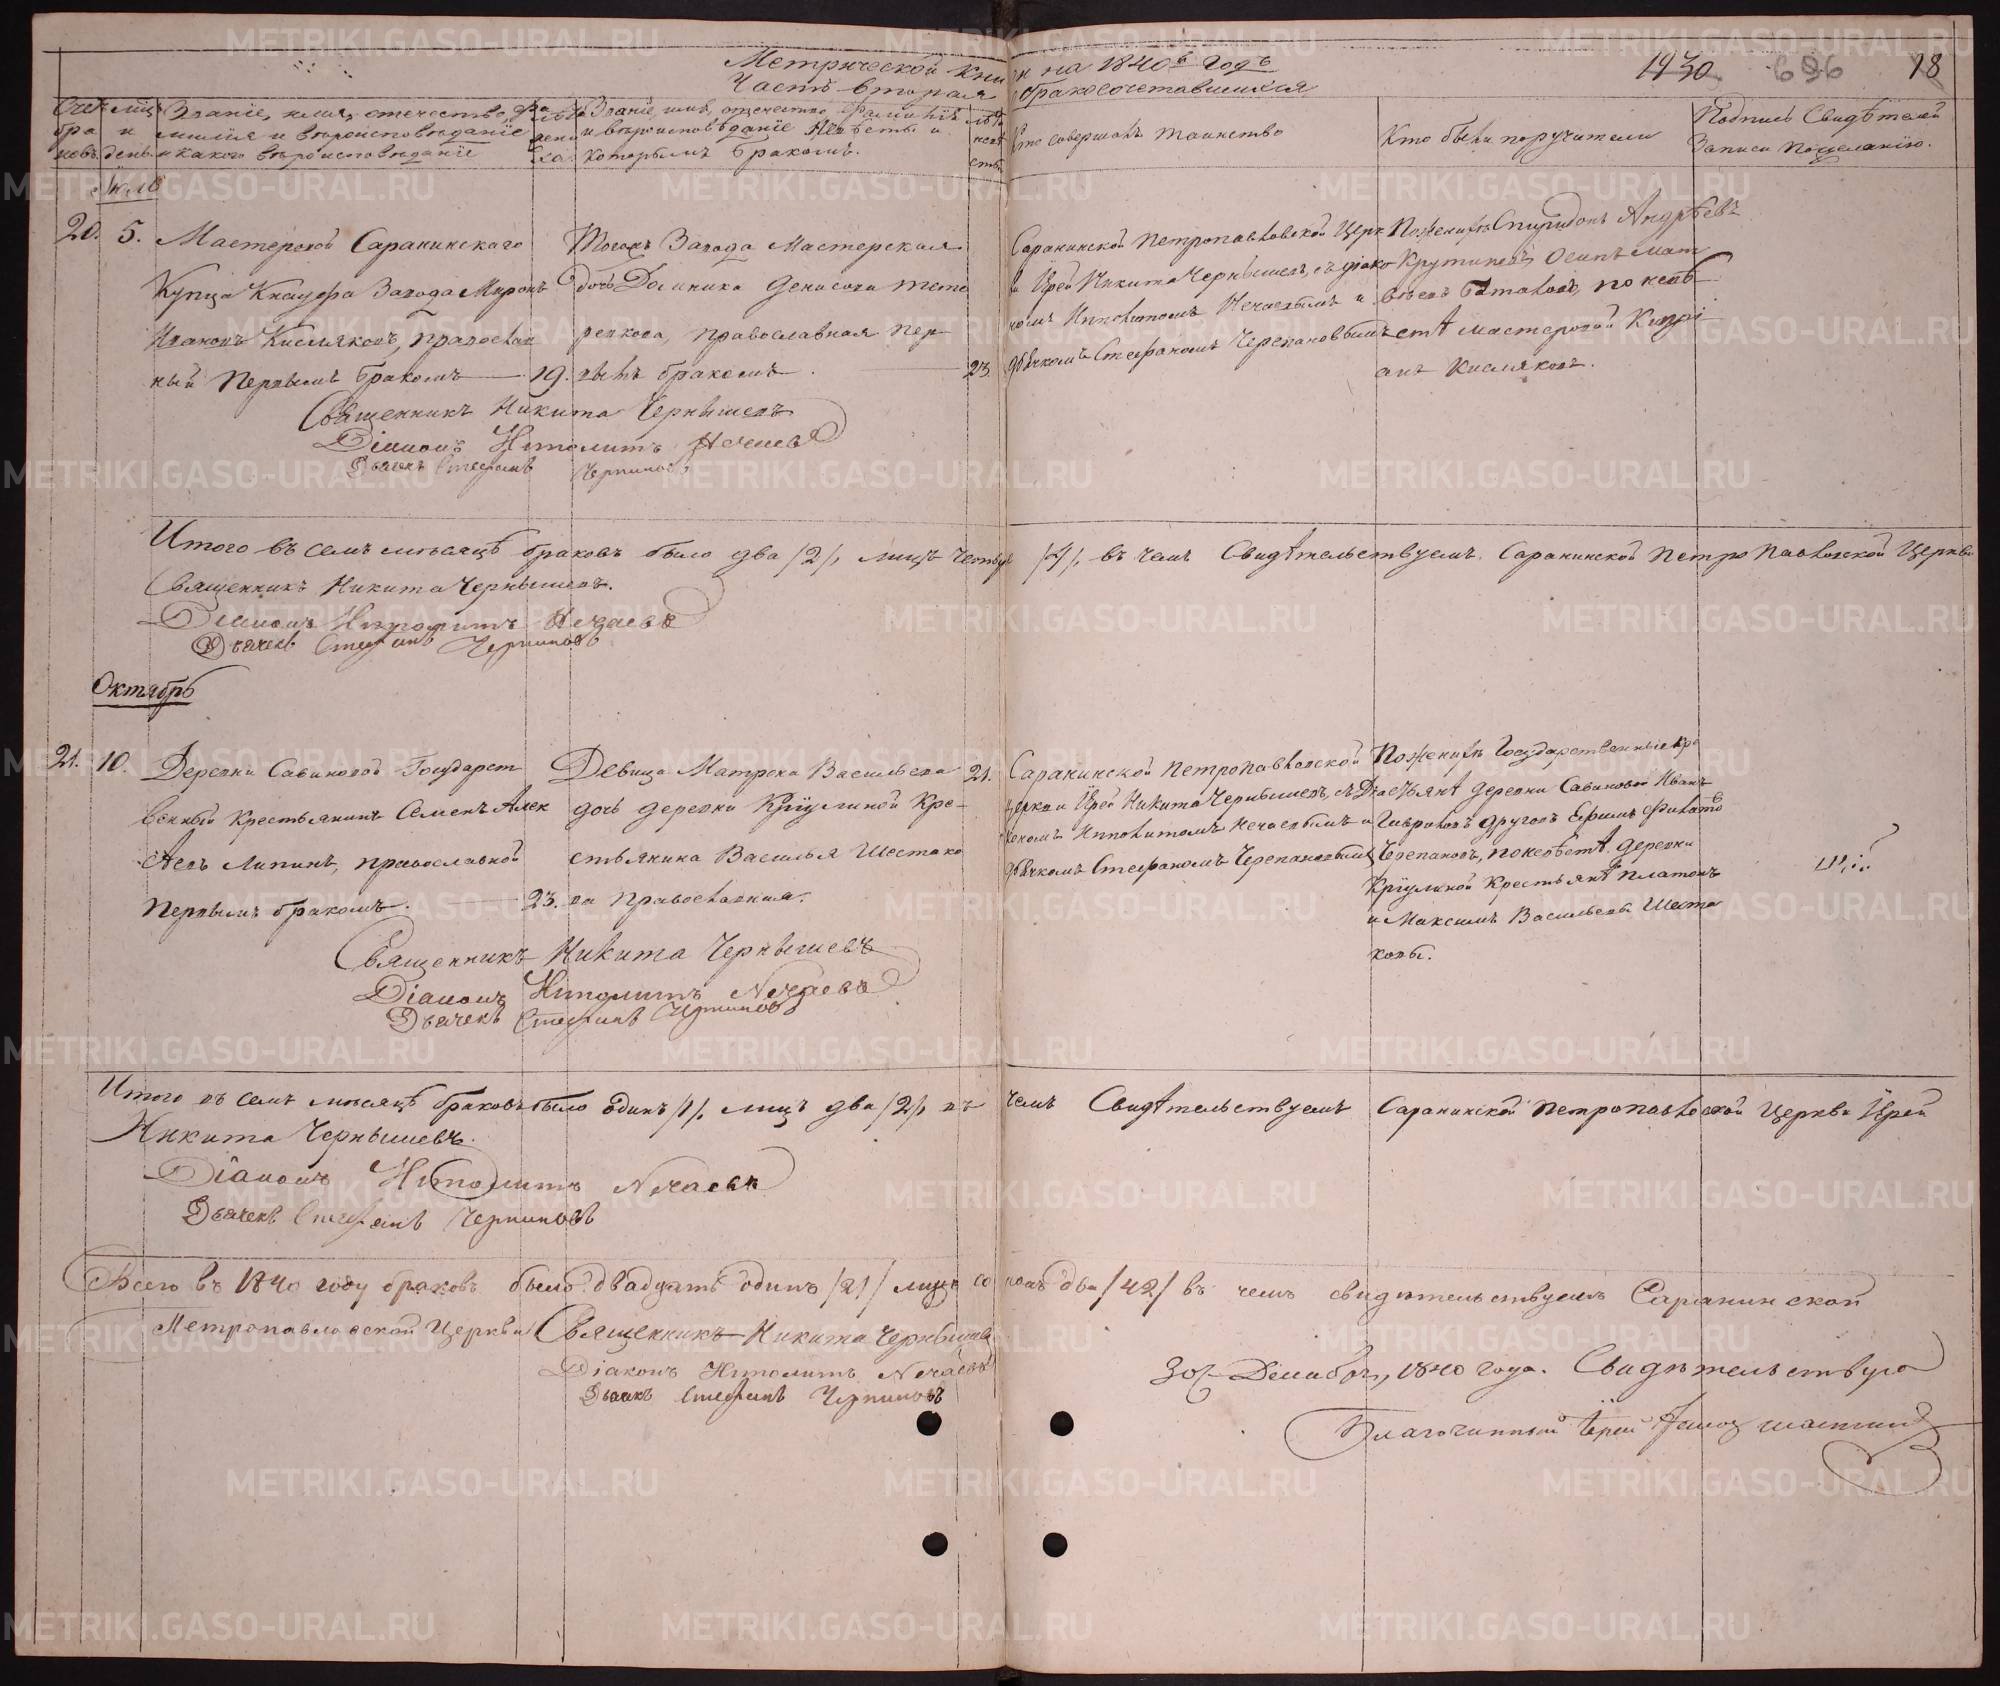 Метрической Книги на 1840й годъ
Часть вторая о бракосочетавшихся
1930 696 18
Счетъ браковъ
Мѣсяцъ и день
Званіе, имя, отечество, фамилія и вѣроисповѣданіе и какого вѣроисповѣданіе
Лѣта жениха
Званіе, имя, отечество, фамилія и вѣроисповѣданіе Невѣсты и которымъ бракомъ.
лѣта невѣсты
Кто совершалъ таинство
Кто были поручители
Подпись Свидѣтелей Записи по желанію.
Июль
20. 5.
Мастеровой Саранинскаго
Купца Кнауфа Завода Миронъ
Ивановъ Кисляковъ, православ
ный Первымъ бракомъ
19.
Тогожъ Завода Мастерская
дочь Домника Денисова Тете
ревкова, православная пер
вымъ бракомъ.
23.
Саранинской Петропавловской Церк
ви Іерей Никита Чернышевъ, съ діако
номъ Ипполитомъ Нечаевымъ и
дьячкомъ Стефаномъ Черепановымъ
По женихѣ Спиридонъ Андрѣевъ
Крутиковъ, Осипъ Мат
вѣевъ, по невѣ
стѣ мастеровой Кипрі
анъ Кисляковъ.
Священникъ Никита Чернышевъ
Діаконъ Иполитъ Нечаевъ
Дьячекъ Стефанъ Черпановъ
Итого въ семъ мѣсяцѣ браковъ было два /2/, лицъ четыре /4/, въ чемъ Свидѣтельствуемъ. Саранинской Петро Павловской Церкви
Священникъ Никита Чернышевъ.
Діаконъ Иполитъ Нечаевъ
Дьячекъ Стефанъ Черпановъ
Октябрь
21. 10.
Деревни Савиновой Государст
венный Крестьянинъ Семенъ Алек
сѣевъ Липинъ, православной
Первымъ бракомъ.
23.
Девица Матрена Васильева
дочь деревни Кріулиной Кре-
стьянина Василья Шестако
ва Православная.
21.
Саранинской Петропавловской
церкви Іерей Никита Чернышевъ, съ Діа
кономъ Ипполитомъ Нечаевымъ и
дьячкомъ Стефаномъ Черепановымъ
По женихѣ Государственные Кре
стьянѣ деревни Савиновой Иванъ
Гавриловъ другой Ефимъ Филатовъ
Черепановъ, по невѣстѣ деревни
Кріулиной Крестьянѣ Платонъ
и Максимъ Васильевы Шеста
ковы.
Священникъ Никита Чернышевъ
Діаконъ Иполитъ Нечаевъ
Дьячекъ Стефанъ Черпановъ
Итого въ семъ мѣсяцѣ браковъ было одинъ /1/, лицъ два /2/, въ чемъ Свидѣтельствуемъ Саранинской Петропавловской Церкви Іерей
Никита Чернышевъ.
Діаконъ Иполитъ Нечаевъ
Дьячекъ Стефанъ Черпановъ
Всего въ 1840 году браковъ было двадцать одинъ /21/ лицъ сорокъ два /42/ въ чемъ свидѣтельствуемъ Саранинской
Петропавловской Церкви Священникъ Никита Чернышевъ
Діаконъ Иполитъ Нечаевъ
Дьячекъ Стефанъ Черпановъ
30. Декабря, 1840 года. Свидѣтельствуетъ
Благочинный Іерей
METRIKI.GASO-URAL.RU